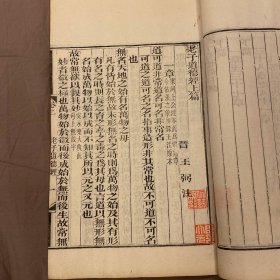 老子道德經上篇
晉 王弼注
一章
道可道非常道名可名非常名
可道之道可名之名指事造形非其常也故不可道不可名
也
無名天地之始有名萬物之母
凡有皆始於無故未形無名之時則爲萬物之始及其有形
有名之時則長之育之亭之毒之爲其母也言道以無形無
名始成萬物以始以成而不知其所以元之又元也
故常無欲以觀其妙
妙者微之極也萬物始於微而後成始於無而後生故常無
老子道德經